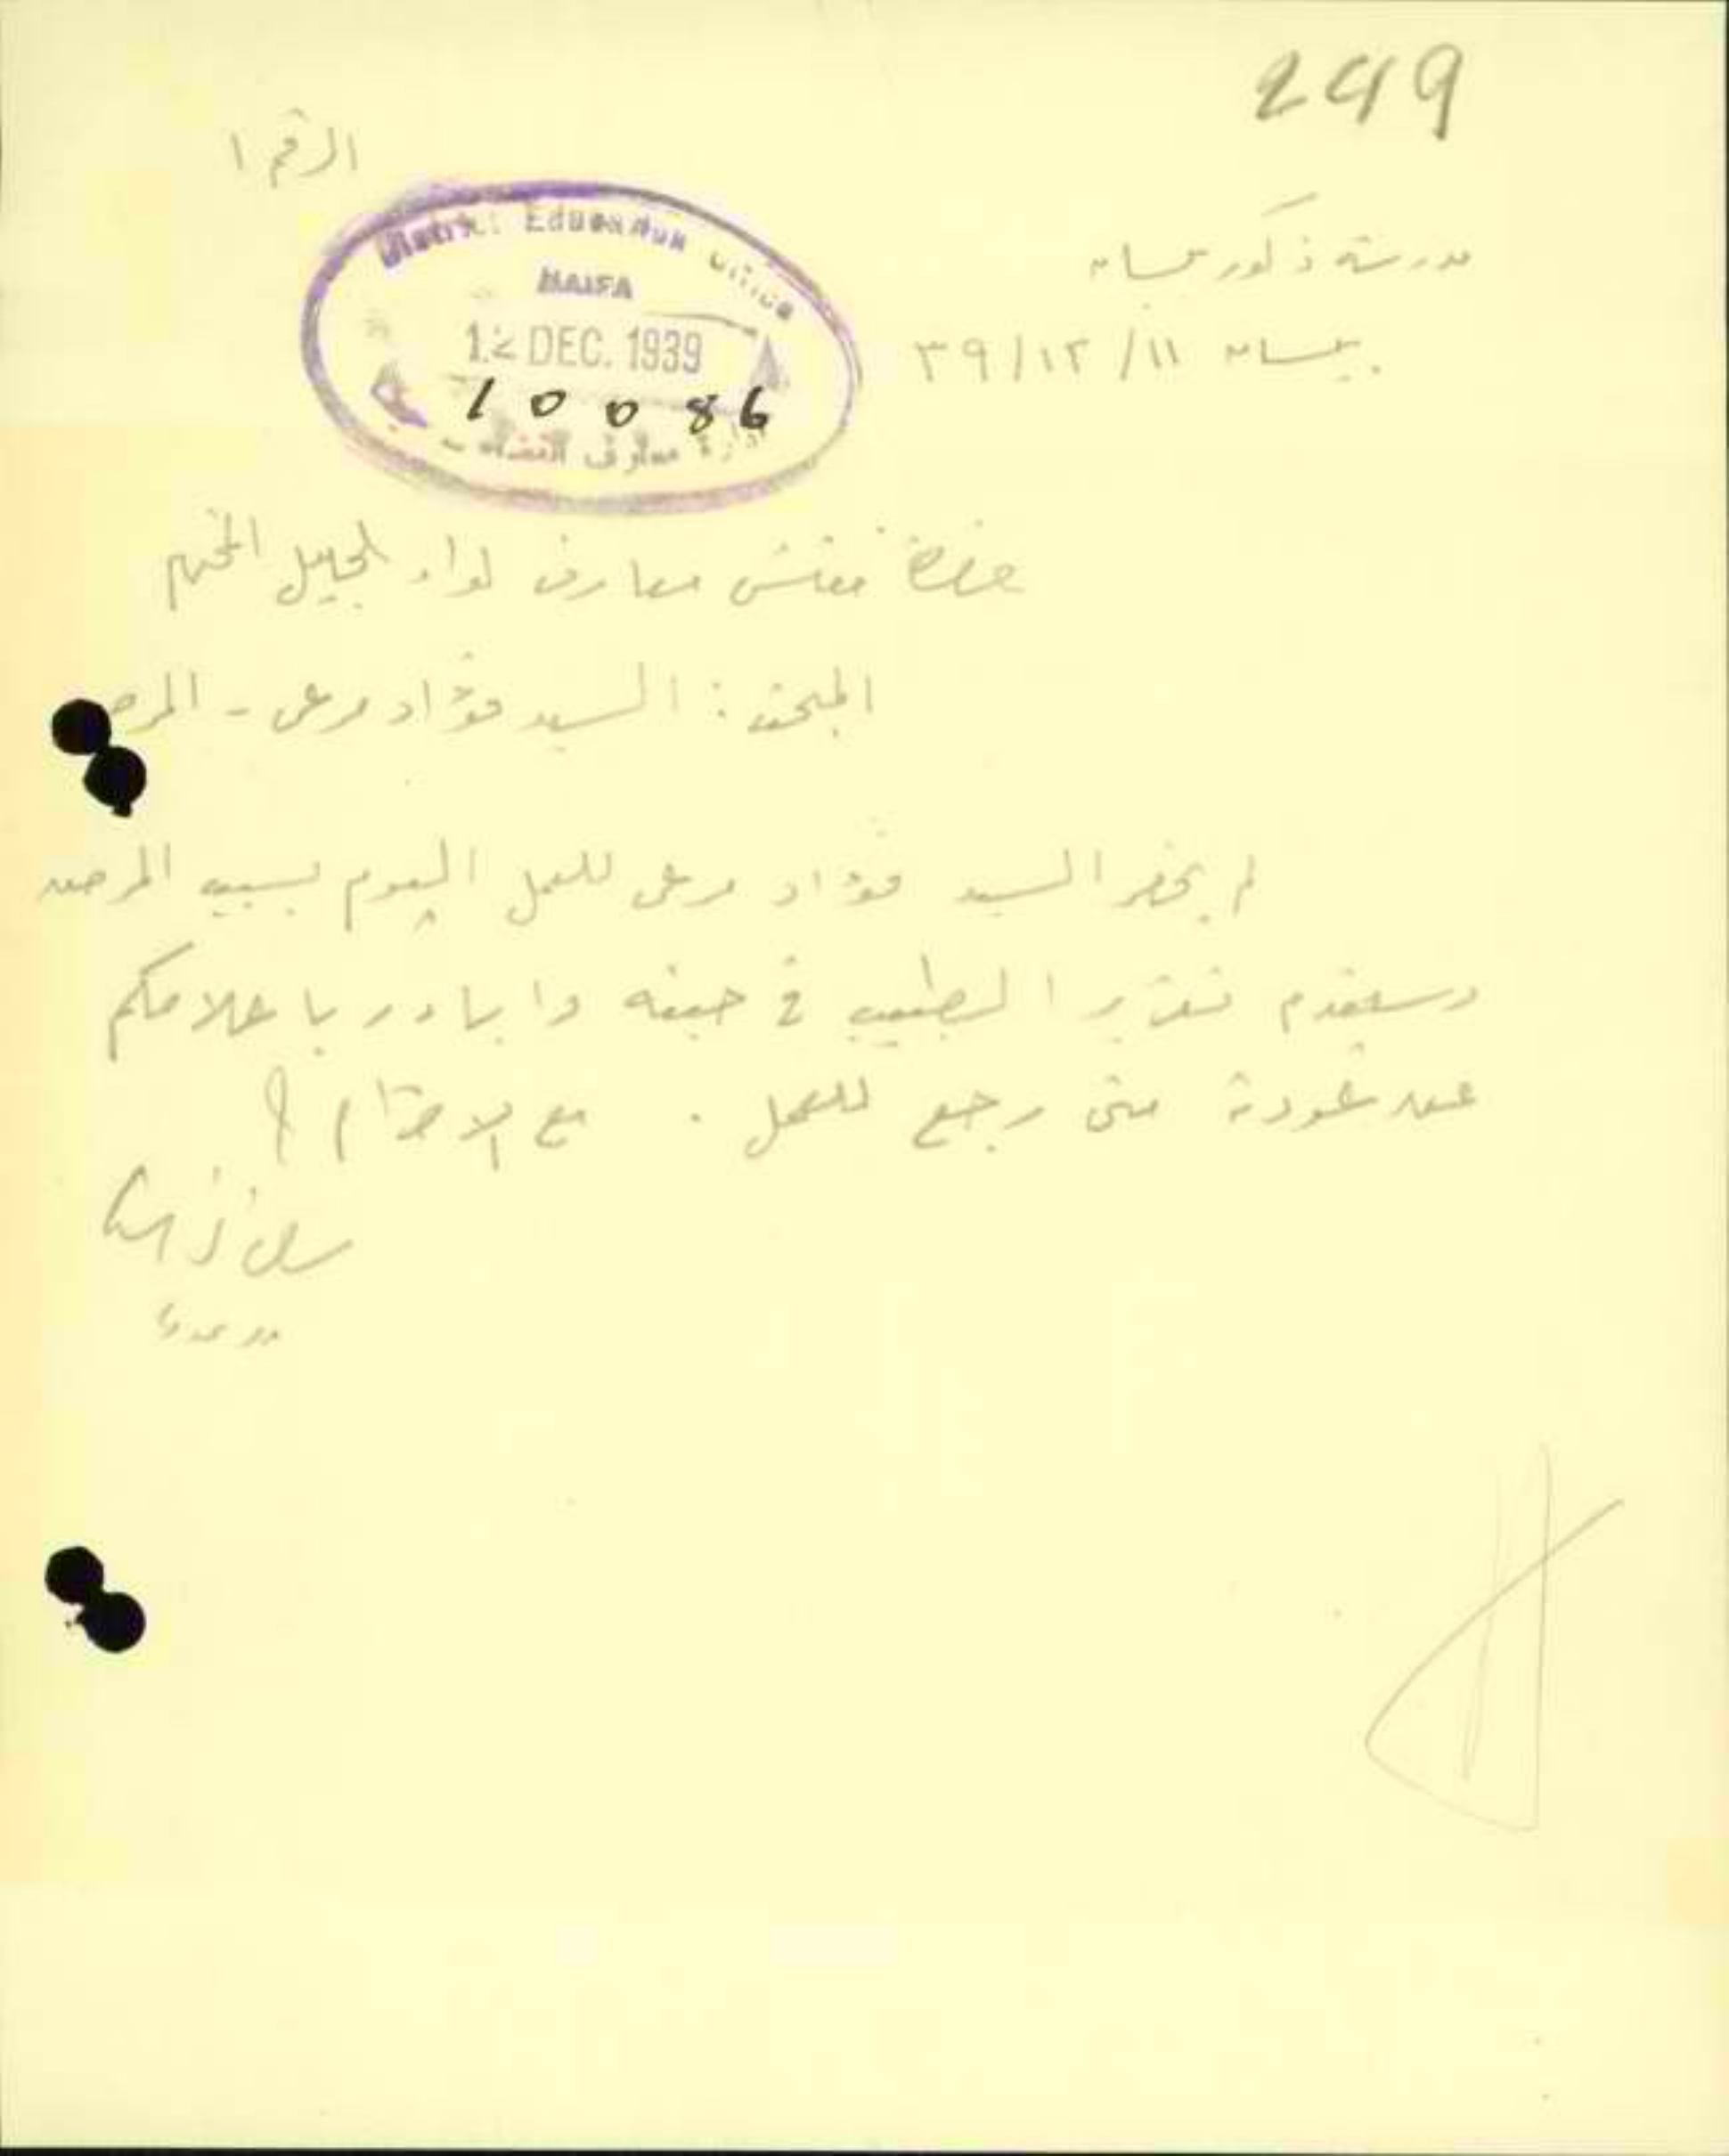 249
الرقم ١
District Education Office
HAIFA
12 DEC. 1939
10086
مدرسة ذكور بيسان
بيسان ١١/١٢/٣٩
حضرة مفتش معارف لواء الجليل المحترم
المبحث : السيد فؤاد مرعي - المرض
لم يحضر السيد فؤاد مرعي للعمل اليوم بسبب المرض
وسيقدم تقرير الطبيب في حينه وابادر باعلامكم
عن عودته متى رجع للعمل . مع الاحترام